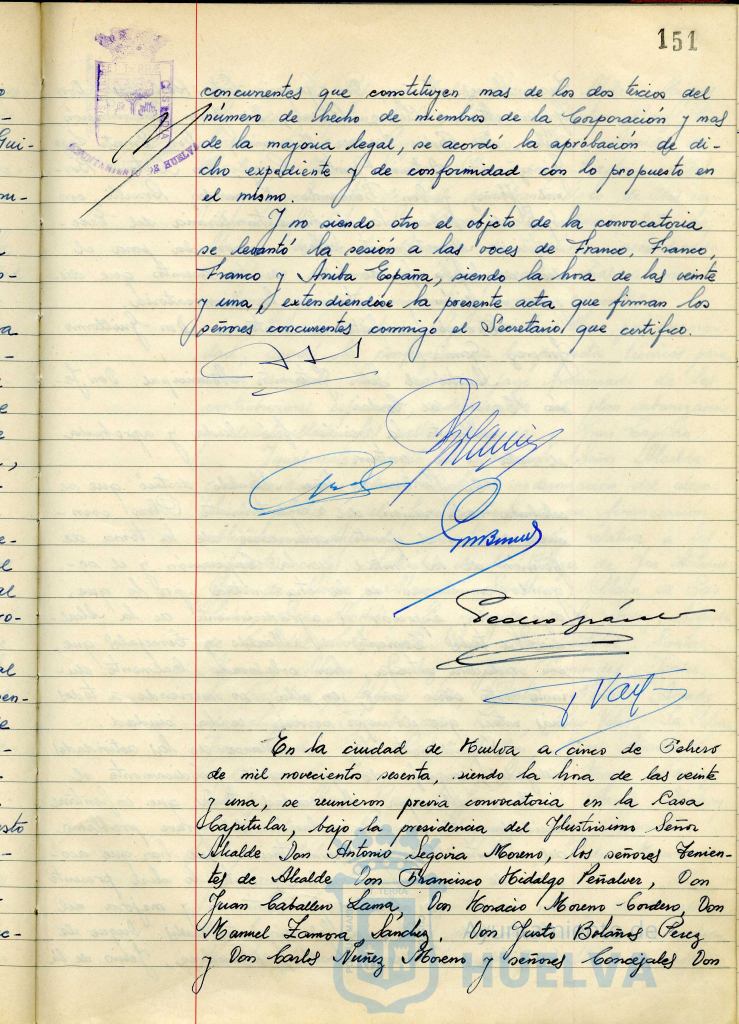 151
concurrentes que constituyen mas de los dos tercios del
número de hecho de miembros de la Corporación y mas
de la mayoria legal, se acordó la aprobación de di-
cho expediente y de conformidad con lo propuesto en
el mismo.
Y no siendo otro el objeto de la convocatoria
se levantó la sesión a las voces de Franco, Franco,
Franco y Arriba España, siendo la hora de las veinte
y una, extendiendose la presente acta que firman los
señores concurrentes conmigo el Secretario que certifico.
En la ciudad de Huelva a cinco de Febrero
de mil novecientos sesenta, siendo la hora de las veinte
y una, se reunieron previa convocatoria en la Casa
Capitular, bajo la presidencia del Ilustrisimo Señor
Alcalde Don Antonio Segovia Moreno, los señores Tenien-
tes de Alcalde Don Francisco Hidalgo Peñalver, Don
Juan Caballero Lama, Don Horacio Moreno-Cordero, Don
Manuel Zamora Sánchez, Don Justo Bolaños Perez
y Don Carlos Núñez Moreno y señores Concejales Don
HUELVA